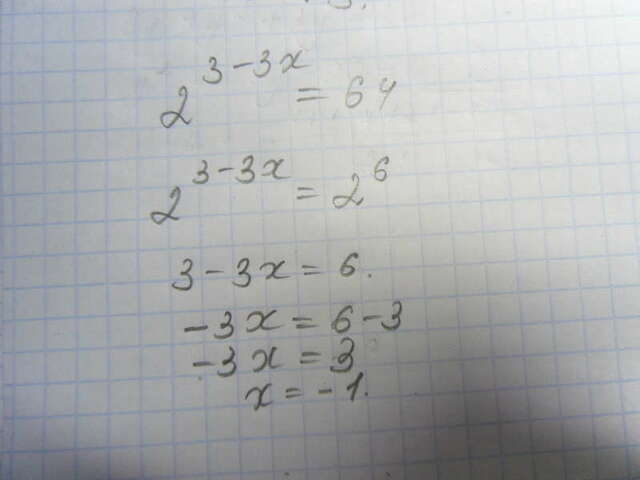 2^{3-3x} = 64
2^{3-3x} = 2^6
3-3x = 6.
-3x = 6-3
-3x = 3
x = -1.